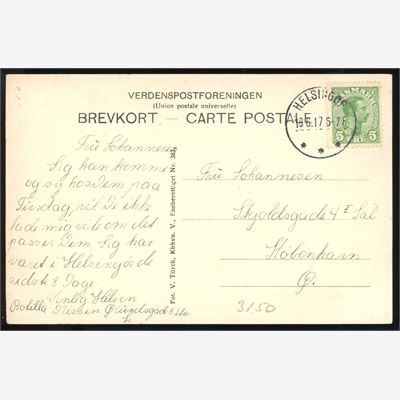 VERDENSPOSTFORENINGEN
(Union postale universelle)
BREVKORT — CARTE POSTALE
HELSINGØR
18.6.17.6-7E
DANMARK
5 ØRE 5
Frú Johannesen
Jeg kan komme
og sy hos Dem paa
Tirsdag, vil De ikke
lade mig vide om det
passer Dem Jeg har
været i Helsingør de
sidste 8 Dage
Venlig Hilsen
Bolilla Nissen
Fot. V. Türck, Kbhvn. V., Eneberettiget Nr.
Frú Johannesen
Skjoldsgade 4 I Sal
København
Ø.
31.50